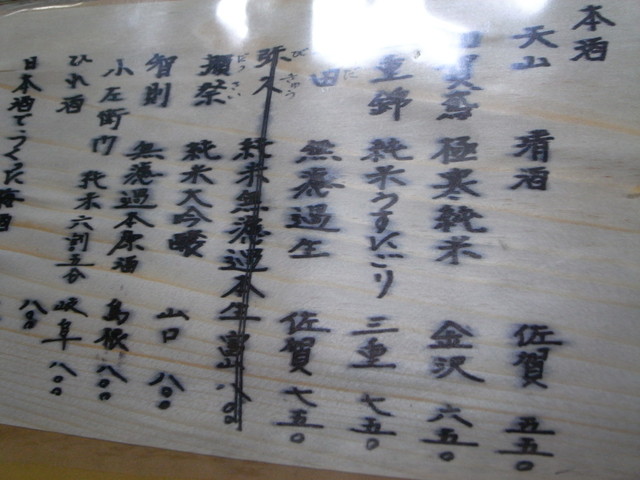 本酒
天山 清酒 佐賀 五五〇
加賀鳶 極寒純米 金沢 六五〇
重錦 純米うすにごり 三重 七五〇
田 無濾過生 佐賀 七五〇
弥久 純米無濾過本生 富山 八〇〇
獺祭 純米大吟醸 山口 八〇〇
智則 無濾過本原酒 島根 八〇〇
小左衛門 純米六割五分 岐阜 八〇〇
ひれ酒 八〇〇
日本酒でつくった梅酒